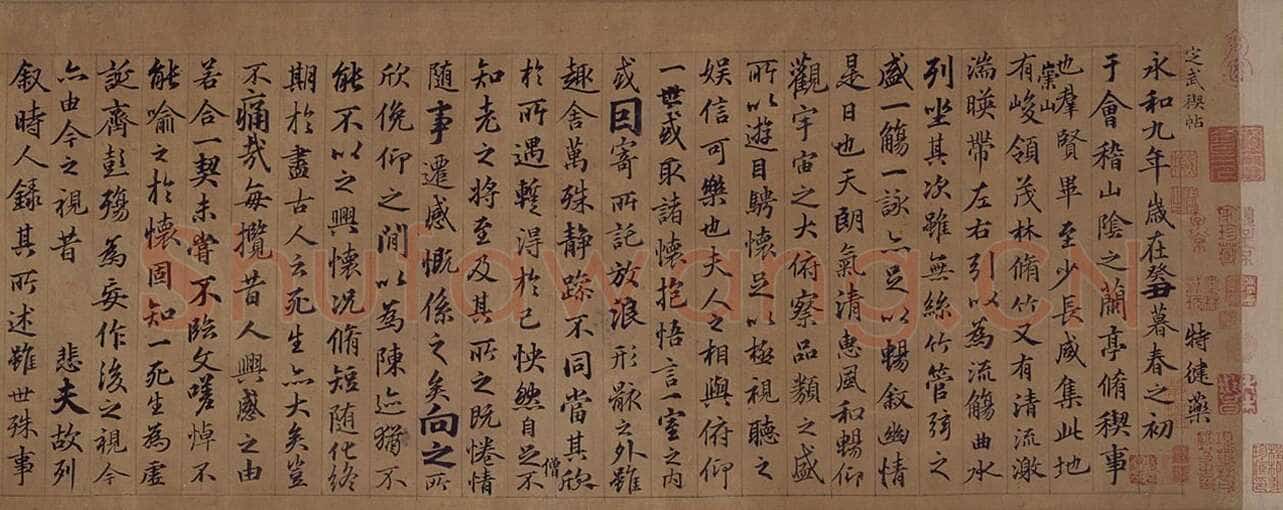 特健藥
定武禊帖
永和九年歲在癸丑暮春之初
于會稽山陰之蘭亭脩稧事
也羣賢畢至少長咸集此地
有崇山峻領茂林脩竹又有清流激
湍暎帶左右引以為流觴曲水
列坐其次雖無絲竹管弦之
盛一觴一詠亦足以暢叙幽情
是日也天朗氣清惠風和暢仰
觀宇宙之大俯察品類之盛
所以遊目騁懷足以極視聽之
娛信可樂也夫人之相與俯仰
一世或取諸懷抱悟言一室之內
或因寄所託放浪形骸之外雖
趣舍萬殊靜躁不同當其欣
於所遇蹔得於己怏然自足不
僧
知老之將至及其所之既惓情
隨事遷感慨係之矣向之所
欣俛仰之閒以為陳迹猶不
能不以之興懷況脩短隨化終
期於盡古人云死生亦大矣豈
不痛哉每攬昔人興感之由
若合一契未嘗不臨文嗟悼不
能喻之於懷固知一死生為虛
誕齊彭殤為妄作後之視今
亦由今之視昔 悲夫故列
叙時人錄其所述雖世殊事
Shufawang.CN